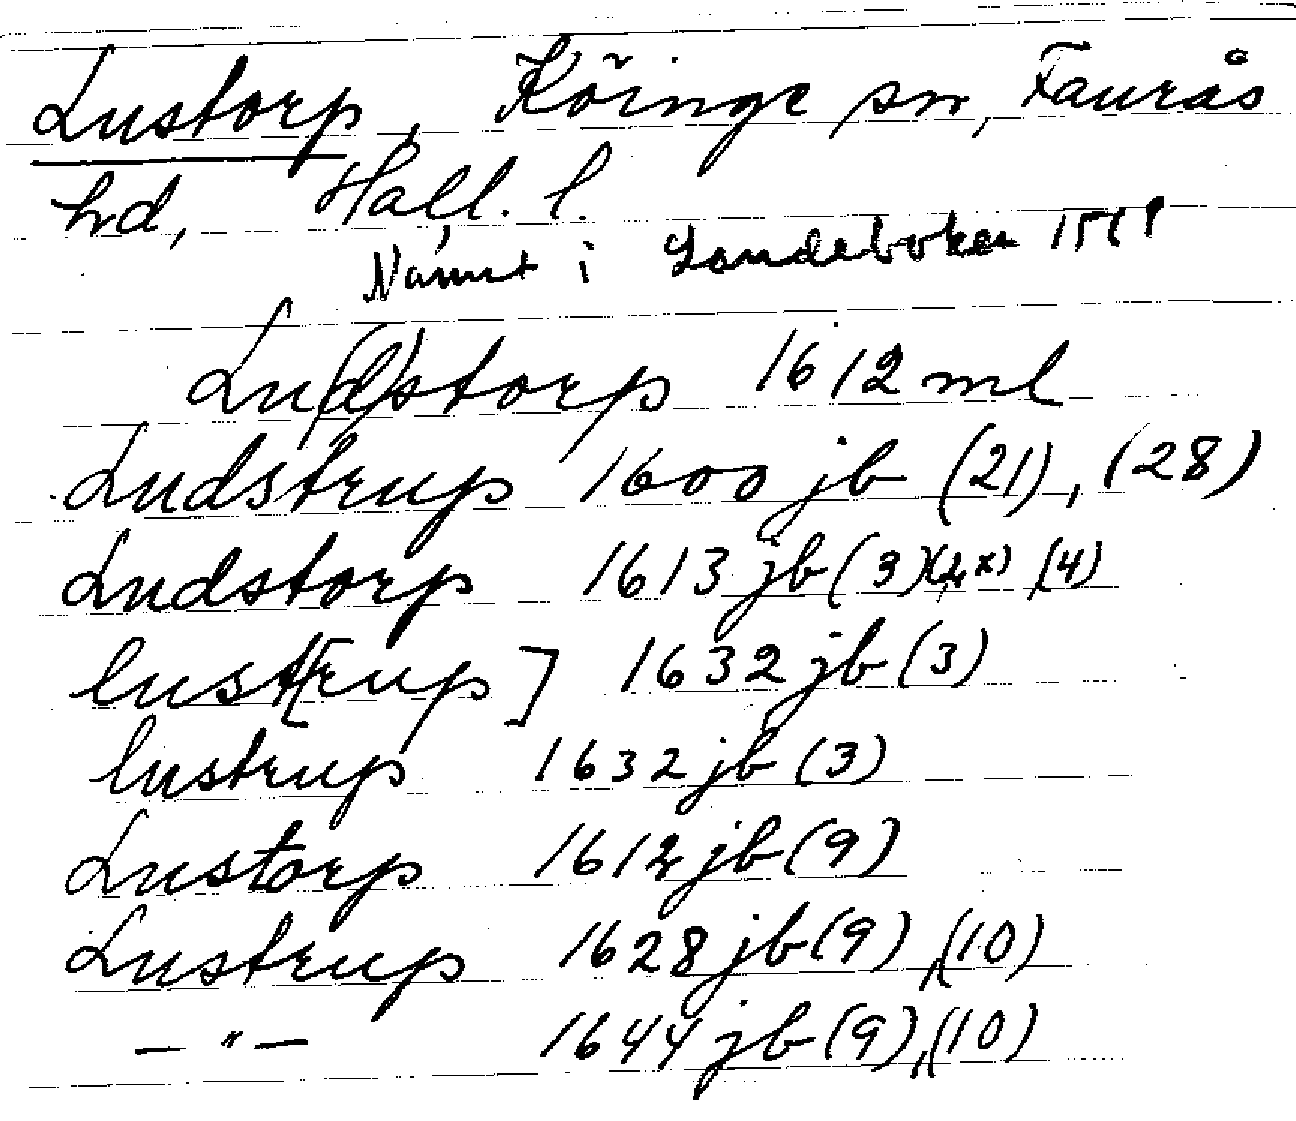 Lustorp, Köinge sn, Faurås
hd, Hall. l.
Nämnt i Landeboken
Lu(d)storp 1612 ml
Ludstrup 1600 jb (21), (28)
Ludstorp 1613 jb (3) (4)
lust[rup] 1632 jb (3)
lustrup 1632 jb (3)
Lustorp 1612 jb (9)
Lustrup 1628 jb (9), (10)
— " — 1644 jb (9), (10)